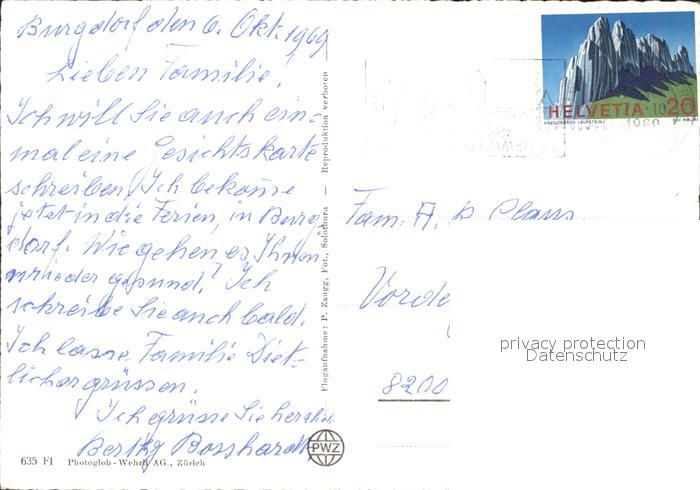 Burgdorf den 6. Okt. 1969
Lieben Familie,
Ich will Sie auch ein-
mal eine Gesichtskarte
schreiben. Ich bekome
jetzt in die Ferien, in Burg
dorf. Wie gehen es Ihnen
wieder gesund? Ich
schreibe Sie auch bald.
Ich lasse Familie Diet-
licher grüssen.
Ich grüsse Sie herzlich
Berthy Bosshardt
635 FI Photoglob-Wehrli AG., Zürich
PWZ
Flugaufnahme: P. Zaugg, Fot., Solothurn — Reproduktion verboten
HELVETIA 10 20
KREUZBERGE (ALPSTEIN)
Fam. A.
Vorde
8200
privacy protection
Datenschutz